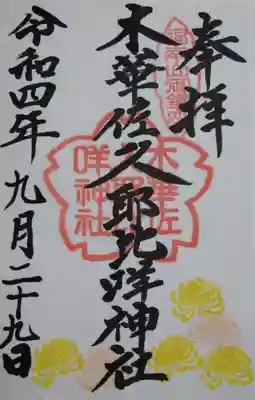 奉拝
木華佐久耶比咩神社
令和四年九月二十九日
木華佐
咩神社